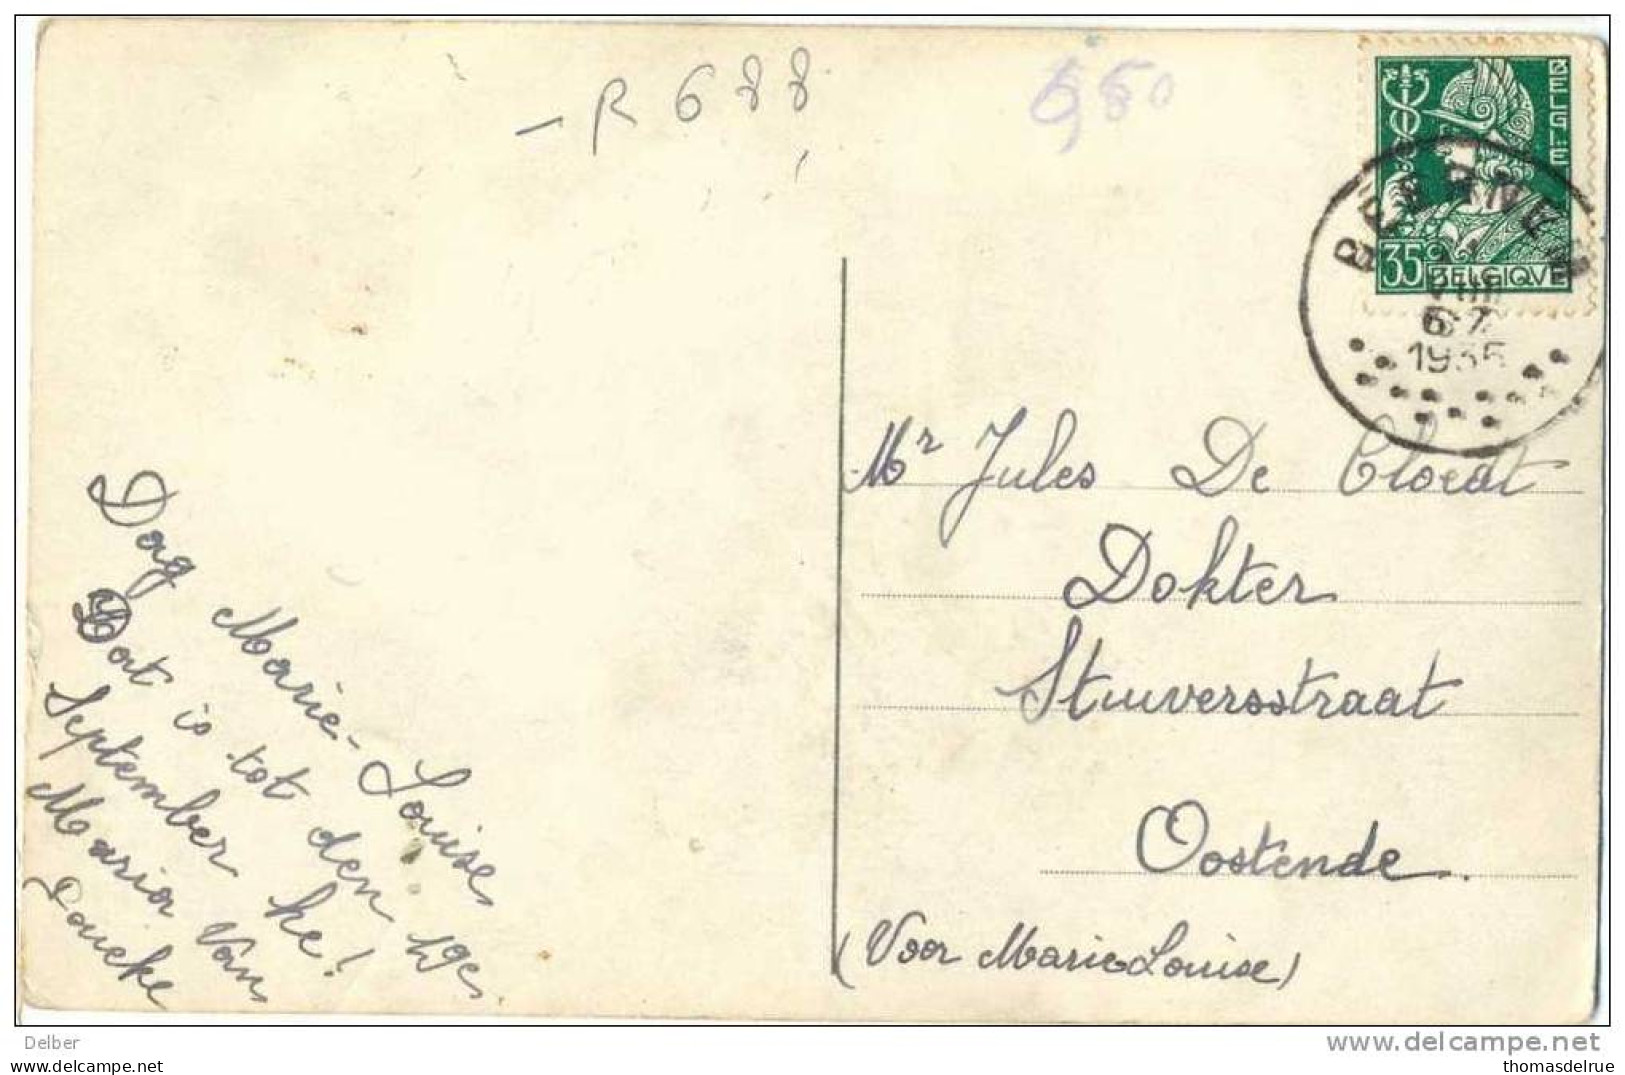 -R 688
650
BELGIË
35c
BELGIQUE
BEERNEM
6-7
1935
Mr Jules De Cloedt
Dokter
Stuiversstraat
Oostende.
(Voor Marie Louise)
Dag Marie-Louise
Dat is tot den 19e
September he!
Maria Van
Loucke
Delber
www.delcampe.net
thomasdelrue